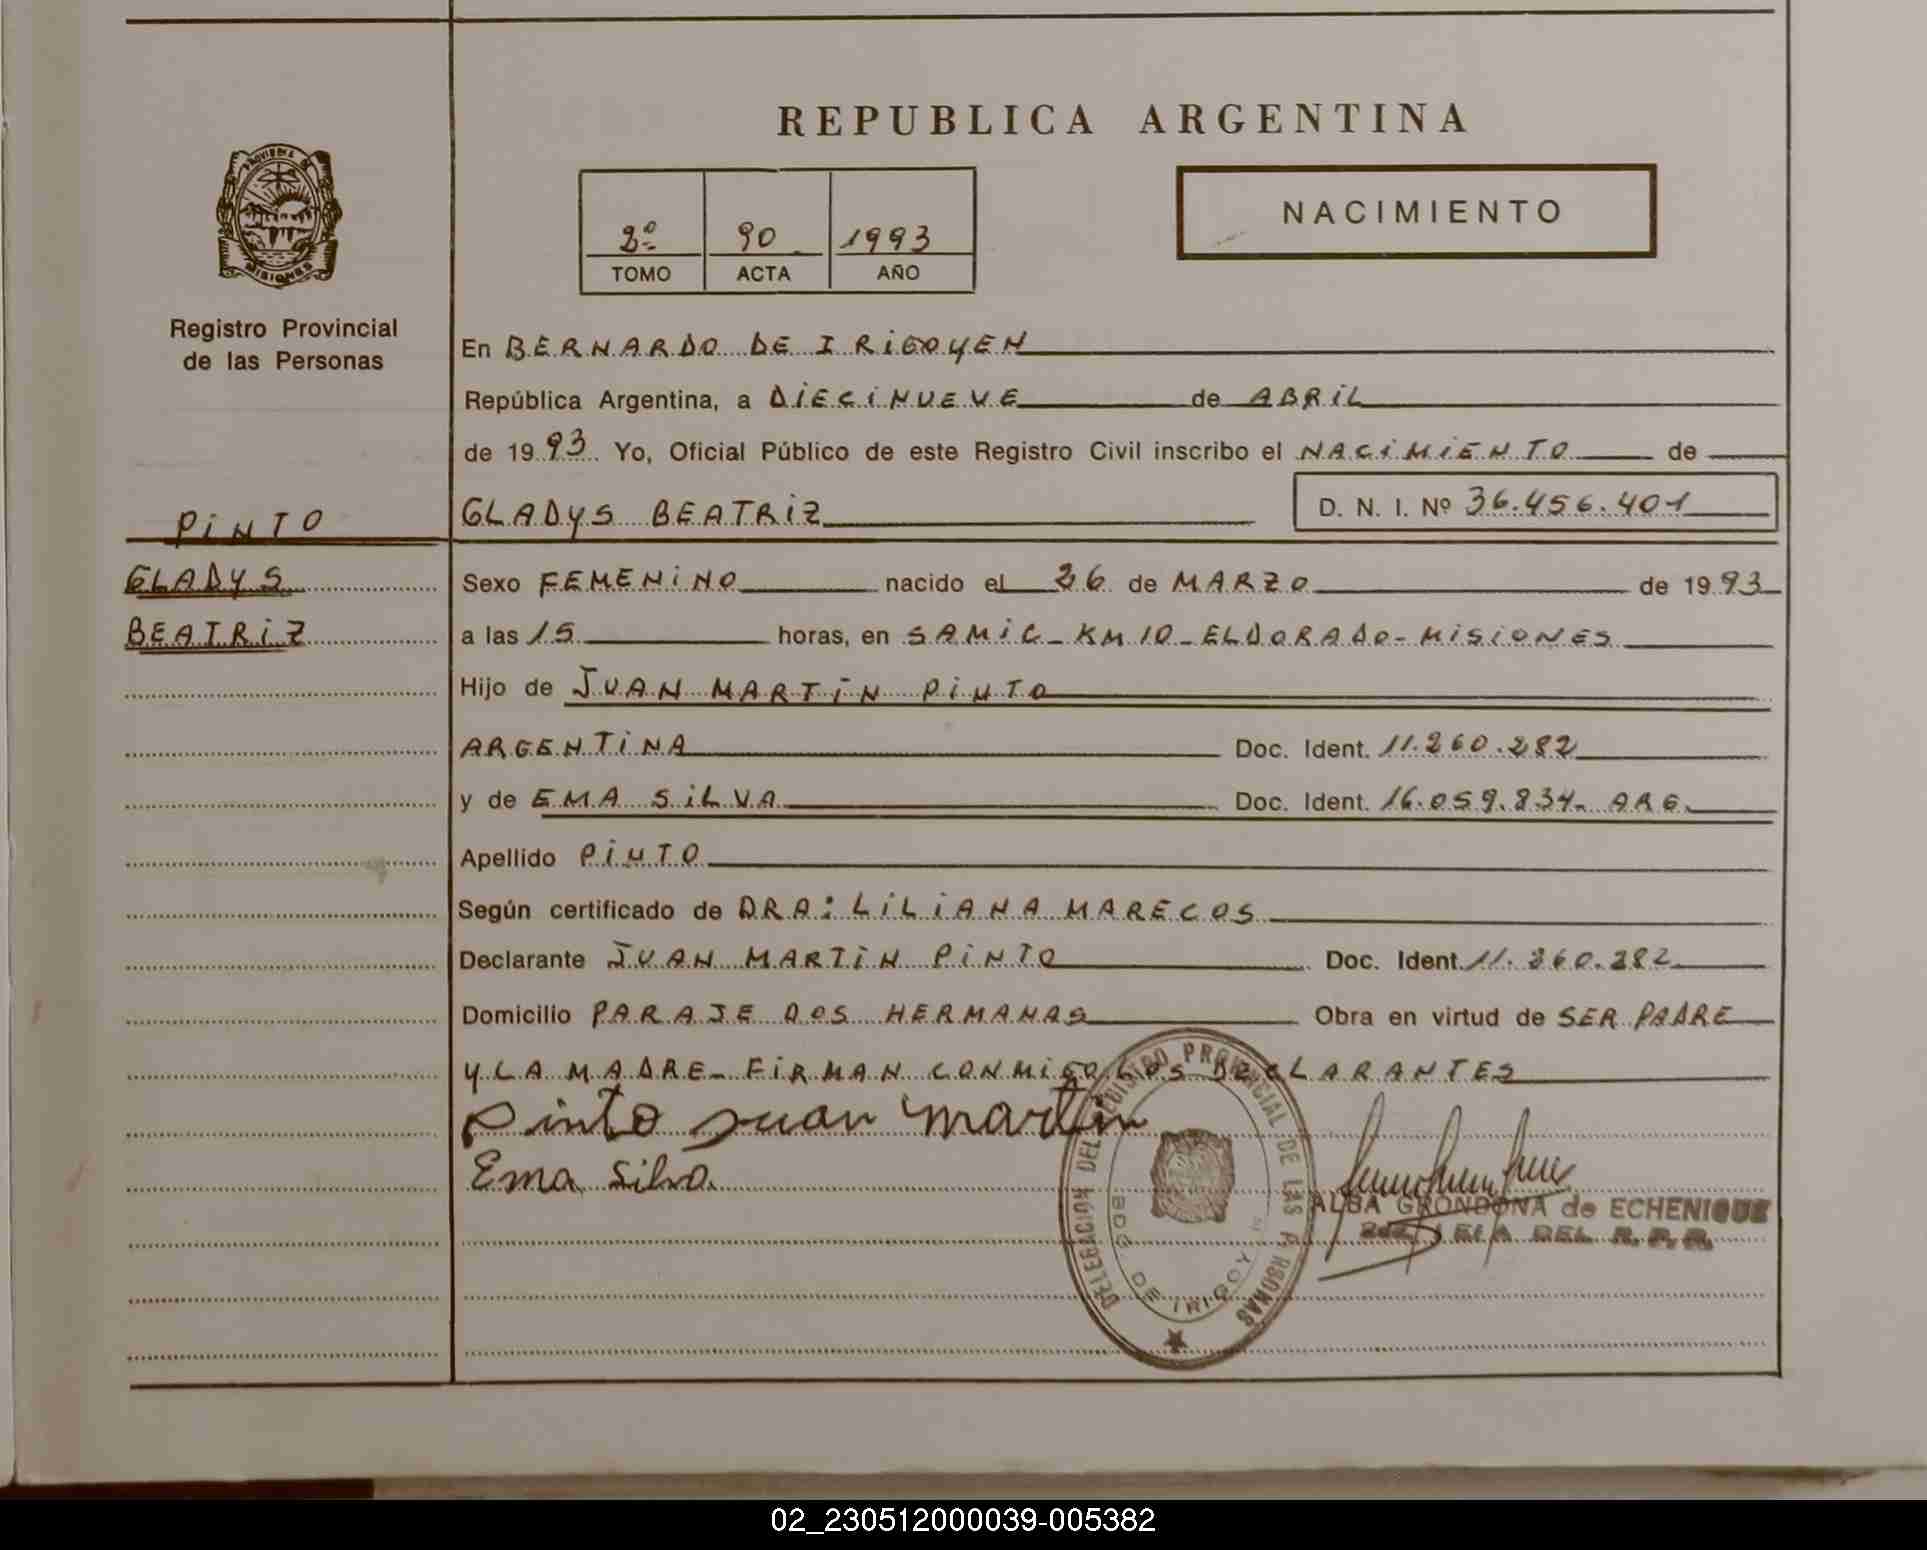 REPUBLICA ARGENTINA
PROVINCIA DE
MISIONES
2º 90 1993
TOMO ACTA AÑO
NACIMIENTO
Registro Provincial
de las Personas
En BERNARDO DE IRIGOYEN
República Argentina, a DIECINUEVE de ABRIL
de 1993 Yo, Oficial Público de este Registro Civil inscribo el NACIMIENTO de
PINTO
GLADYS BEATRIZ D. N. I. Nº 36.456.401
GLADYS
Sexo FEMENINO nacido el 26 de MARZO de 1993
BEATRIZ
a las 15 horas, en SAMIC - KM 10 - ELDORADO - MISIONES
Hijo de JUAN MARTIN PINTO
ARGENTINA Doc. Ident. 11.260.282
y de EMA SILVA Doc. Ident. 16.059.834- ARG.
Apellido PINTO
Según certificado de DRA: LILIANA MARECOS
Declarante JUAN MARTIN PINTO Doc. Ident. 11.260.282
Domicilio PARAJE DOS HERMANAS Obra en virtud de SER PADRE
Y LA MADRE - FIRMAN CONMIGO LOS DECLARANTES
Pinto Juan Martin
Ema Silva.
DELEGACION DEL REGISTRO PROVINCIAL DE LAS PERSONAS
BDO. DE IRIGOYEN
ALBA GRONDONA de ECHENIQUE
DEL R.P.P.
02_230512000039-005382